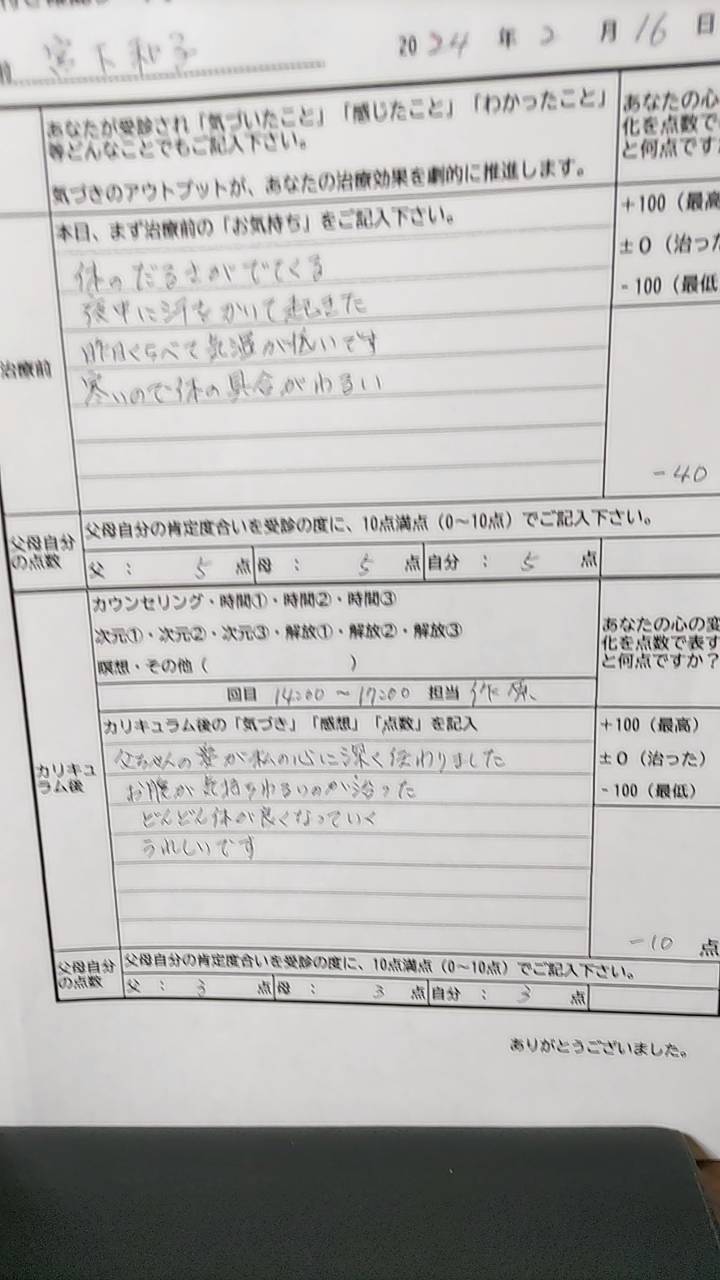 宮下和子 2024年2月16日
あなたが受診され「気づいたこと」「感じたこと」「わかったこと」
等どんなことでもご記入下さい。
気づきのアウトプットが、あなたの治療効果を劇的に推進します。
あなたの心
化を点数で
と何点です
治療前
本日、まず治療前の「お気持ち」をご記入下さい。
体のだるさがでてくる
夜中に汗をかいて起きた
昨日くらべて気温が低いです
寒いので体の具合がわるい
+100(最高
±0(治った
-100(最低
-40
父母自分
の点数
父母自分の肯定度合いを受診の度に、10点満点(0~10点)でご記入下さい。
父: 5 点 母: 5 点 自分: 5 点
カリキュ
ラム後
カウンセリング・時間①・時間②・時間③
次元①・次元②・次元③・解放①・解放②・解放③
瞑想・その他( )
回目 14:00~17:00 担当
あなたの心の変
化を点数で表す
と何点ですか?
カリキュラム後の「気づき」「感想」「点数」を記入
父ちゃんの愛が私の心に深く伝わりました
お腹が気持ちわるいのが治った
どんどん体が良くなっていく
うれしいです
+100(最高)
±0(治った)
-100(最低)
-10 点
父母自分
の点数
父母自分の肯定度合いを受診の度に、10点満点(0~10点)でご記入下さい。
父: 3 点 母: 3 点 自分: 3 点
ありがとうございました。